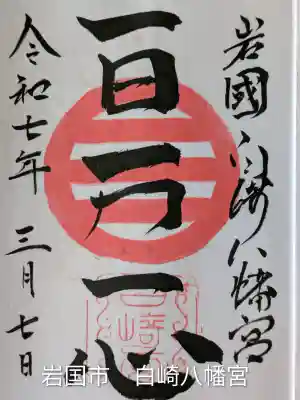 岩國白崎八幡宮
一日一力一心
令和七年 三月七日
岩国市　白崎八幡宮